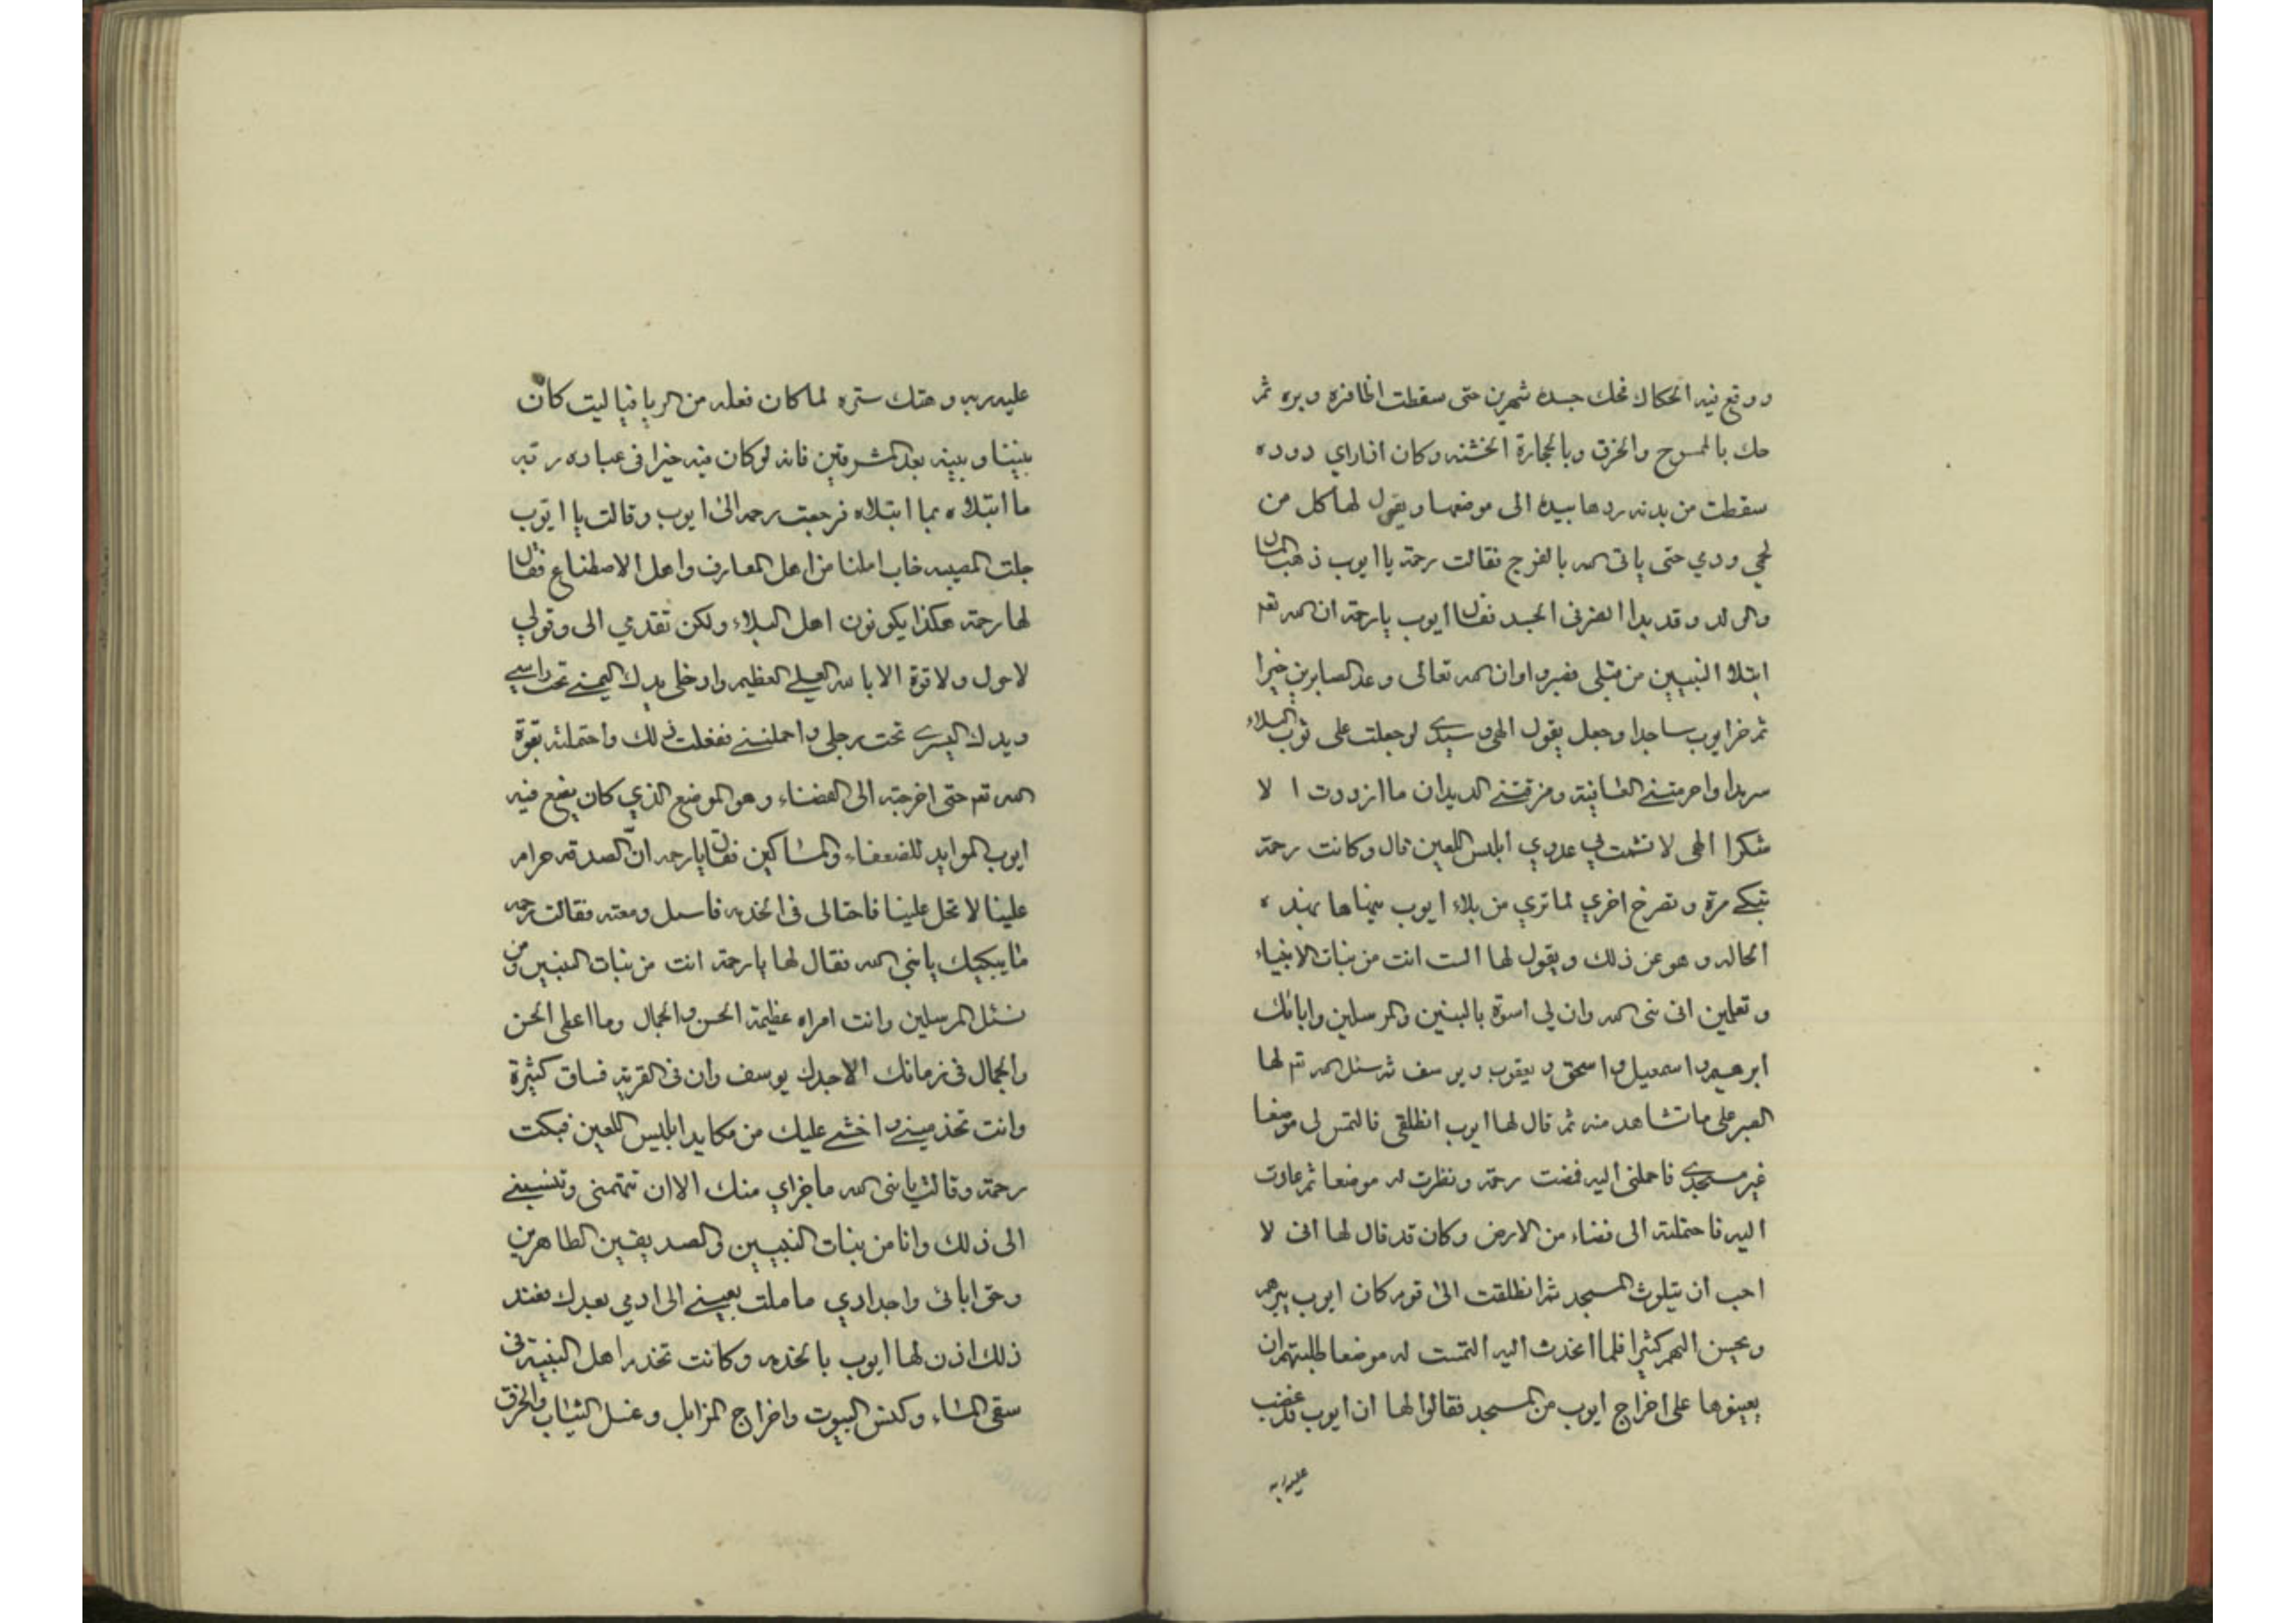 ووقع فيه الحكاك فحك جسده شهرين حتى سقطت اظافره وبره ثم
حك بالمسوح والخرق وبالحجارة الخشنه وكان اذا راي دوده
سقطت من بدنه ردها بيده الى موضعها ويقول لها كل من
لحمي ودمي حتى ياتي الله بالفرج فقالت رحمة يا ايوب ذهب المال
والولد وقد بدا الضر في الجسد فقال ايوب يا رحمة ان الله تعم
ابتلا النبيين من قبلي فصبروا وان الله تعالى وعد الصابرين خيرا
ثم خر ايوب ساجدا وجعل يقول الهي وسيدي لو جعلت على ثوب البلاء
سرمدا واحرمتني العافية ومزقتني الديدان ما ازددت ا لا
شكرا الهي لا تشمت بي عدوي ابليس اللعين قال وكانت رحمة
تبكي مرة وتصرخ اخري لما تري من بلاء ايوب ينهاها بهذه
الحاله وهو عن ذلك ويقول لها الست انت من بنات الانبياء
وتعلمين اني نبي الله وان لي اسوة بالنبيين والمرسلين وابائك
ابرهيم واسمعيل واسحق ويعقوب ويوسف ثم سئل الله تعم لها
الصبر على ما تشاهد منه ثم قال لها ايوب انطلقي فالتمس لي موضعا
غير مسجدي فاحملني اليه فمضت رحمة ونظرت له موضعا ثم عادت
اليه فاحتملته الى فضاء من الارض وكان قد قال لها اني لا
احب ان يتلوث المسجد ثم انطلقت الى قوم كان ايوب يبرهم
ويحسن اليهم كثيرا فلما اتخدت اليه التمست له موضعا طلبتهم ان
يعينوها على اخراج ايوب من المسجد فقالوا لها ان ايوب قد غضب
عليه ربه
عليه ربه وهتك ستره لما كان فعله من الريا فيا ليت كان
بيننا وبينه بعد المشرقين فانه لو كان فيه خيرا في عباده ربه
ما ابتلاه بما ابتلاه فرجعت رحمه الى ايوب وقالت يا ايوب
جلت المصيبه خاب املنا من اهل المعارف واهل الاصطناع فقال
لها رحمة هكذا يكونون اهل البلاء ولكن تقدمي الى وقولي
لا حول ولا قوة الا بالله العلي العظيم وادخلي يدك اليمني تحت راسي
ويدك اليسري تحت رجلي واحملنني ففعلت ذلك واحتملته بقوة
الله تعم حتى اخرجته الى الفضاء وهو الموضع الذي كان يضع فيه
ايوب الموايد للضعفاء والمساكين فقال يا رحمه ان الصدقه حرام
علينا لا تحل علينا فاحتالى في الخدمه فاسبل دمعته فقالت رحمه
ما يبكيك يا نبي الله فقال لها يا رحمة انت من بنات النبيين ومن
نسل المرسلين وانت امراه عظيمة الحسن والجمال وما اعلى الحسن
والجمال في زمانك الا جدك يوسف وان في القرية فساق كثيرة
وانت تخذميني واخشي عليك من مكايد ابليس اللعين فبكت
رحمة وقالت يا نبي الله ما جزاي منك الا ان تتهمني وتنسبني
الى ذلك وانا من بنات النبيين والصديقين الطاهرين
وحق ابائي واجدادي ما ملت بعيني الى ادمي بعدك فعند
ذلك اذن لها ايوب بالخدمه وكانت تخدم اهل البنيه في
سقي الماء وكنس البيوت واخراج المزابل وغسل الثياب والخرق